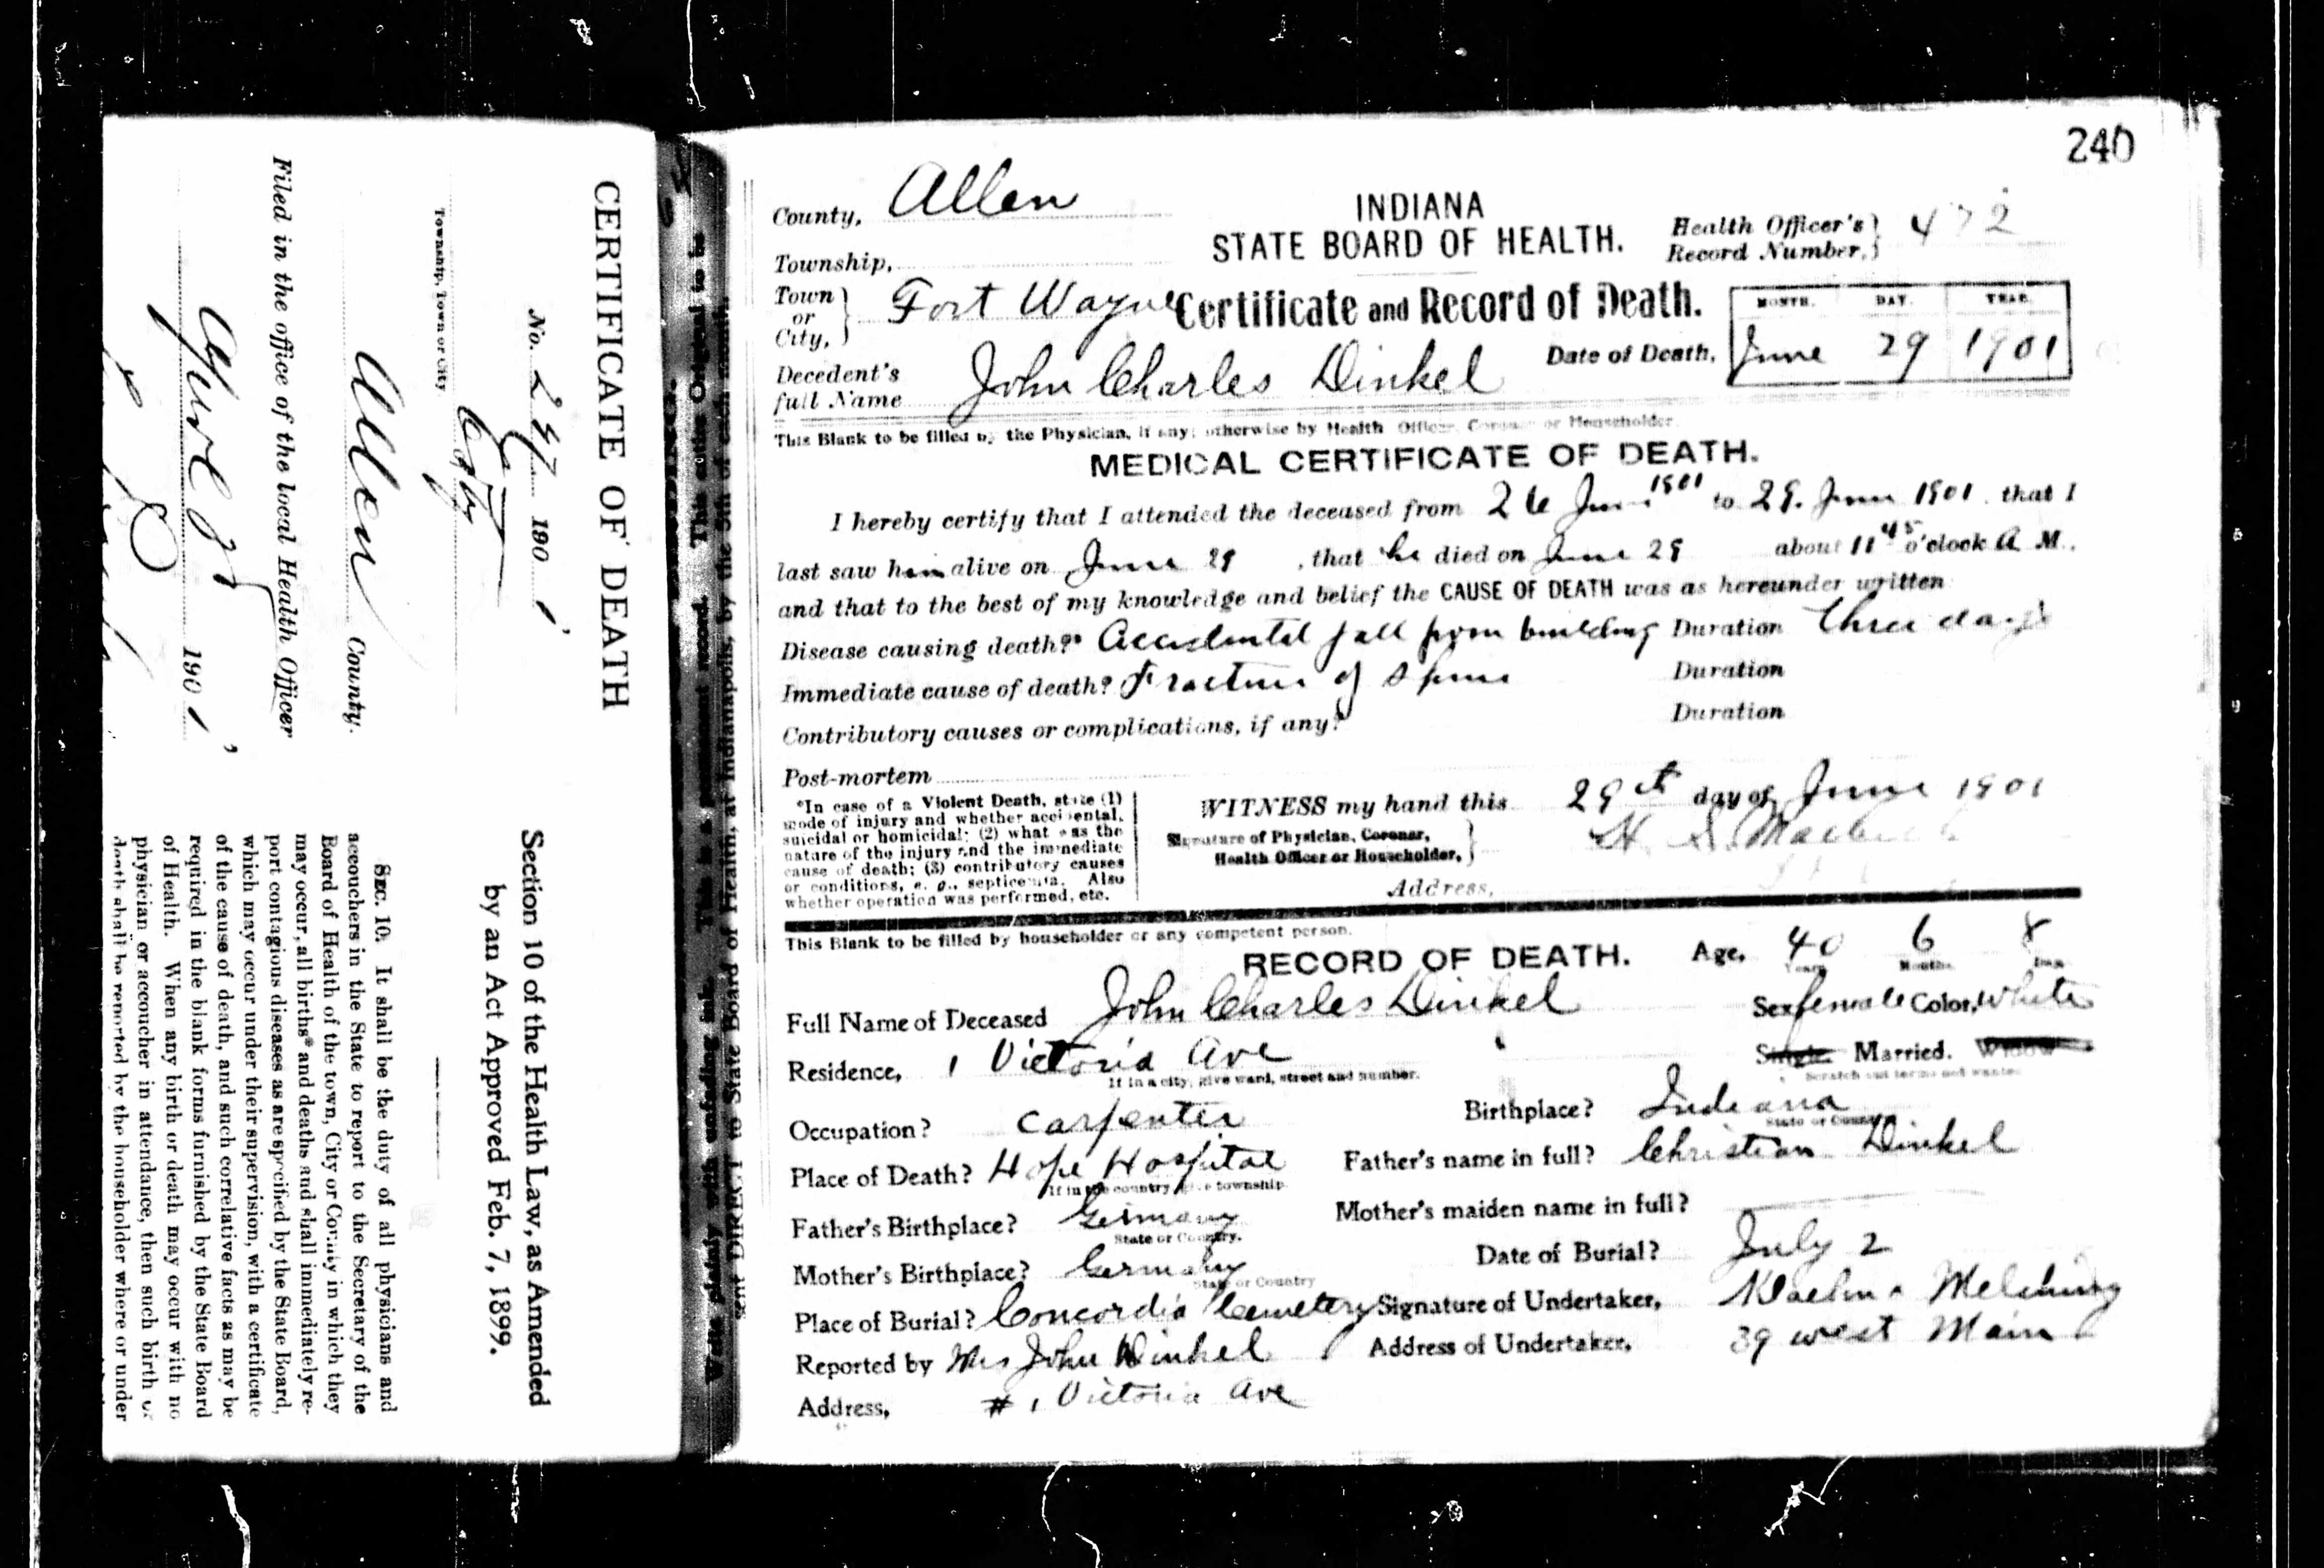 CERTIFICATE OF DEATH
No. 190 1
City
Township, Town or City
Allen County.
Filed in the office of the local Health Officer
190 1
Section 10 of the Health Law, as Amended
by an Act Approved Feb. 7, 1899.
SEC. 10. It shall be the duty of all physicians and
accouchers in the State to report to the Secretary of the
Board of Health of the town, City or County in which they
may occur, all births* and deaths and shall immediately re-
port contagious diseases as are specified by the State Board,
which may occur under their supervision, with a certificate
of the cause of death, and such correlative facts as may be
required in the blank forms furnished by the State Board
of Health. When any birth or death may occur with no
physician or accoucher in attendance, then such birth or
death shall be reported by the householder where or under
Write plainly with unfading ink. This is a permanent record. This entire Original to be
sent DIRECT to State Board of Health, at Indianapolis, by the 5th of each month.
240
County, Allen
INDIANA
STATE BOARD OF HEALTH.
Health Officer's
Record Number, 472
Township,
Town
or
City, Fort Wayne
Certificate and Record of Death.
MONTH. DAY. YEAR.
Date of Death, June 29 1901
Decedent's
full Name John Charles Dinkel
This Blank to be filled by the Physician, if any; otherwise by Health Officer, Coroner or Householder.
MEDICAL CERTIFICATE OF DEATH.
I hereby certify that I attended the deceased from 26 June 1901 to 29. June 1901. that I
last saw him alive on June 29, that he died on June 29 about 11 45 o'clock A M.,
and that to the best of my knowledge and belief the CAUSE OF DEATH was as hereunder written
Disease causing death?* Accidental fall from building Duration three days
Immediate cause of death? Fracture of Spine Duration
Contributory causes or complications, if any? Duration
Post-mortem
*In case of a Violent Death, state (1)
mode of injury and whether accidental,
suicidal or homicidal; (2) what was the
nature of the injury and the immediate
cause of death; (3) contributory causes
or conditions, e. g., septicemia. Also
whether operation was performed, etc.
WITNESS my hand this 29th day of June 1901
Signature of Physician, Coroner,
Health Officer or Householder,
Address,
This Blank to be filled by householder or any competent person.
RECORD OF DEATH.
Age, 40 6 8
Years Months Days
Full Name of Deceased John Charles Dinkel
Sex female Color, White
Residence, 1 Victoria Ave
If in a city, give ward, street and number.
Single. Married. Widow
Scratch out terms not wanted
Occupation? Carpenter
Birthplace? Indiana
State or Country
Place of Death? Hope Hospital
If in the country give township.
Father's name in full? Christian Dinkel
Father's Birthplace? Germany
State or Country.
Mother's maiden name in full?
Mother's Birthplace? Germany
State or Country
Date of Burial? July 2
Place of Burial? Concordia Cemetery
Signature of Undertaker, Klaehn & Melching
Reported by Mrs John Dinkel
Address of Undertaker, 39 west Main
Address, # 1 Victoria Ave